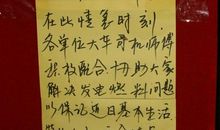 在此情急时刻
各单位大车司机师傅
积极配合、协助大家
解决发电燃料问题
以保证通日基本生活